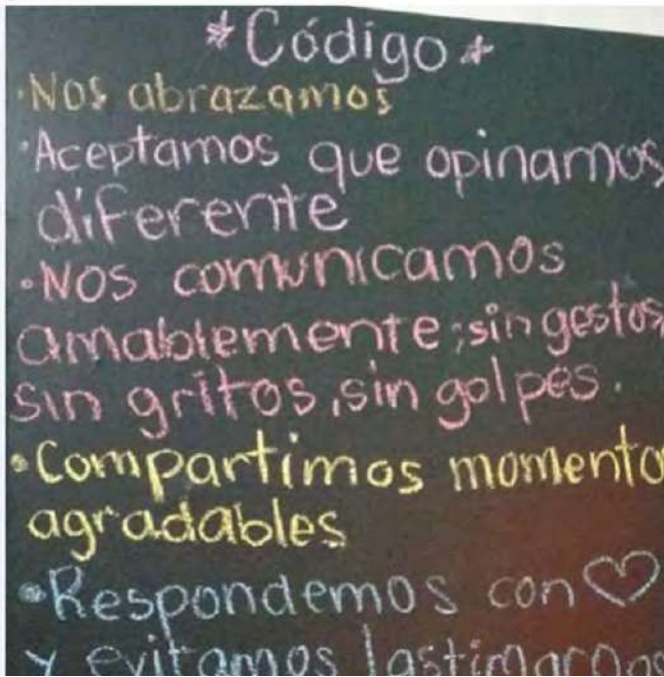 *Código*
·Nos abrazamos
·Aceptamos que opinamos
diferente
·Nos comunicamos
amablemente; sin gestos,
sin gritos, sin golpes.
·Compartimos momento
agradables
·Respondemos con ♡
y evitamos lastimarnos